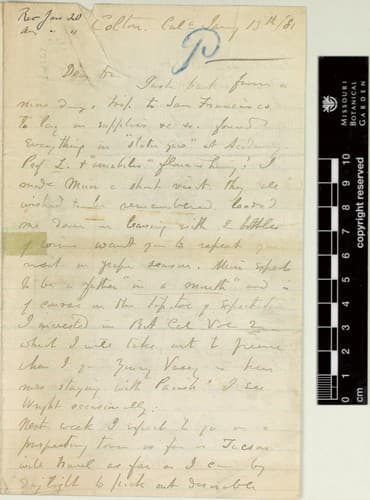 Rec Jan 20
an " "
Colton. Cala Jany 13th/81
P
Dear Dr
Just back from a
nine days trip to San Francisco
to lay in supplies &c &c. found
everything in "statu quo" at Academy.
Prof L. & "mirabilis" flourishing! I
made Muir a short visit they all
wished to be remembered. loaded
me down in leaving with 2 bottles
of wine want you to repeat your
visit in grape season. Muir expects
to be a father "in a month" and is
of course on the tiptoe of expectation
I invested in Bot Cal Vol 2
which I will take out to
when I go Vasey is here
now staying with Parish I see
Wright occasionally.
Next week I expect to go on a
prospecting tour as far as Tucson
will travel as far as I can by
daylight to pick out desirable
MISSOURI
BOTANICAL
GARDEN
copyright reserved
0 1 2 3 4 5 6 7 8 9 10
cm